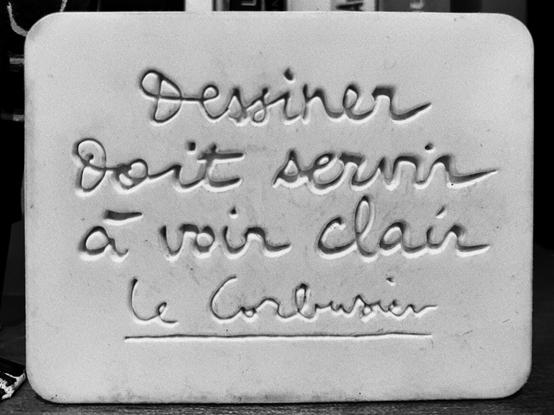 Dessiner
Doit servir
à voir clair
Le Corbusier